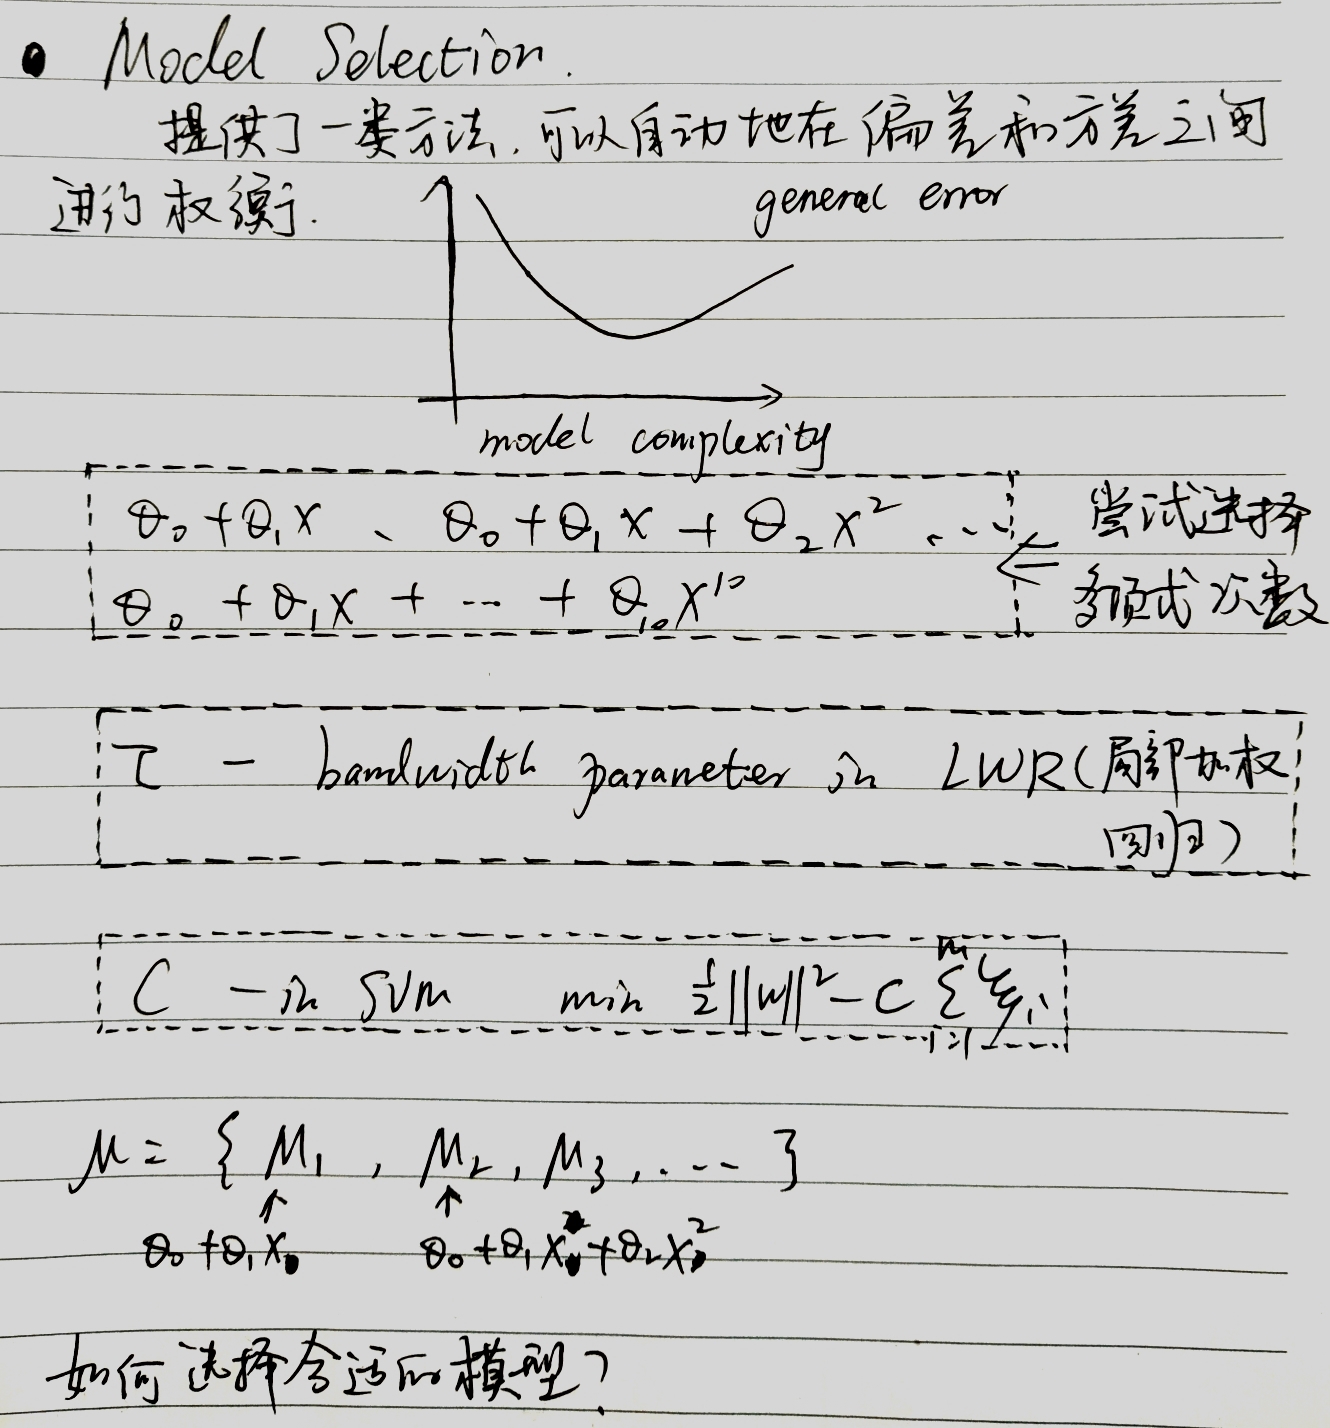 • Model Selection.
提供了一类方法.可以自动地在偏差和方差之间
进行权衡.
general error
model complexity
θ₀+θ₁x 、 θ₀+θ₁x+θ₂x² ...
θ₀+θ₁x+...+θ₁₀x¹⁰
← 尝试选择
多项式次数
τ - bandwidth parameter in LWR(局部加权
回归)
C - in SVM min ½||w||²-C Σᵢ₌₁ᵐ ξᵢ
M = { M₁ , M₂, M₃, .... }
↑ ↑
θ₀+θ₁x θ₀+θ₁x+θ₂x²
如何选择合适的模型?